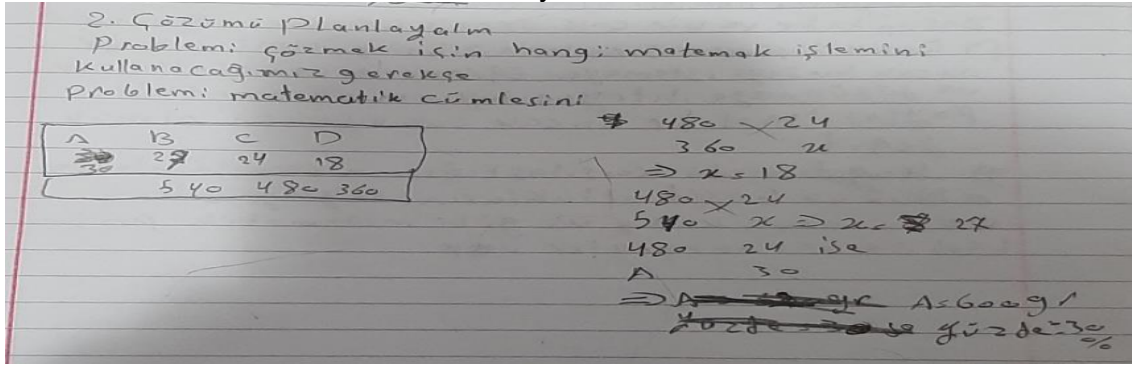 2. Çözümü Planlayalım
Problemi çözmek için hangi matemak işlemini
kullanacağımız gerekçe
Problemi matematik cümlesini
A B C D
30 27 24 18
540 480 360
480 24
360 x
⇒ x = 18
480 24
540 x ⇒ x = 27
480 24 ise
A 30
⇒ A = 600 gr
yüzde = 30 %